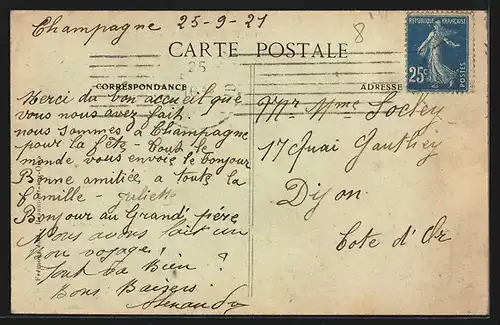 Champagne 25-9-21
8
CARTE POSTALE
25
REPUBLIQUE FRANÇAISE
25c
POSTES
CORRESPONDANCE
ADRESSE
Merci du bon accueil que
vous nous avez fait.
nous sommes à Champagne
pour la fête - tout le
monde vous envoie le bonjour
Bonne amitiée a toute la
famille - Juliette
Bonjour au Grand père
Nous avons fait un
bon voyage !
Tout va Bien ?
Bons Baisers
Mr Mme
17 Quai Gauthey
Dijon
Cote d'Or